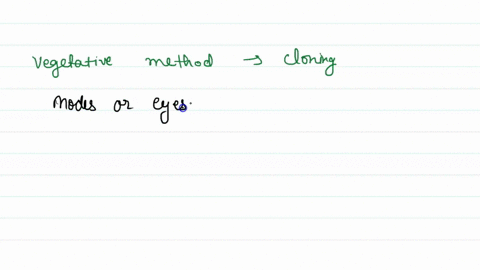 vegetative method → cloning
nodes or eyes.